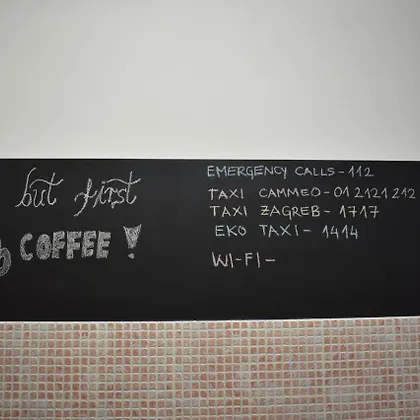 but first
COFFEE!
EMERGENCY CALLS - 112
TAXI CAMMEO - 01 2121 212
TAXI ZAGREB - 1717
EKO TAXI - 1414
WI-FI -